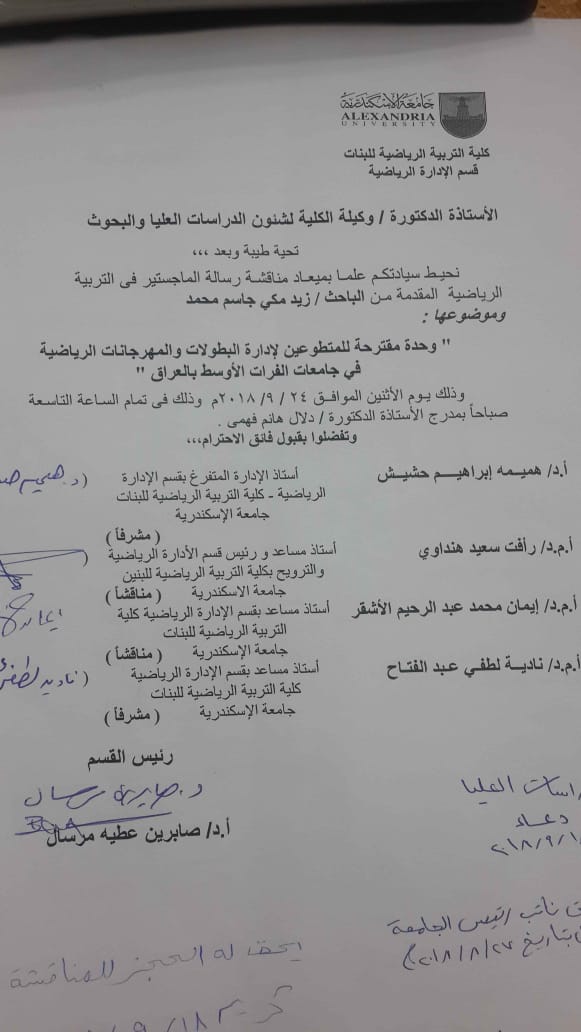 جامعة الإسكندرية
ALEXANDRIA
UNIVERSITY
كلية التربية الرياضية للبنات
قسم الإدارة الرياضية
الأستاذة الدكتورة / وكيلة الكلية لشئون الدراسات العليا والبحوث
تحية طيبة وبعد ،،،
نحيط سيادتكم علما بميعاد مناقشة رسالة الماجستير فى التربية
الرياضية المقدمة من الباحث / زيد مكي جاسم محمد
وموضوعها :
" وحدة مقترحة للمتطوعين لإدارة البطولات والمهرجانات الرياضية
في جامعات الفرات الأوسط بالعراق "
وذلك يوم الأثنين الموافق ٢٤ / ٩ / ٢٠١٨م وذلك فى تمام الساعة التاسعة
صباحاً بمدرج الأستاذة الدكتورة / دلال هانم فهمى .
وتفضلوا بقبول فائق الاحترام،،،
أ.د/ هميمه إبراهيم حشيش أستاذ الإدارة المتفرغ بقسم الإدارة
الرياضية - كلية التربية الرياضية للبنات
جامعة الإسكندرية
( مشرفاً )
أ.م.د/ رأفت سعيد هنداوي أستاذ مساعد و رئيس قسم الأدارة الرياضية
والترويح بكلية التربية الرياضية للبنين
جامعة الاسكندرية ( مناقشاً )
أ.م.د/ إيمان محمد عبد الرحيم الأشقر أستاذ مساعد بقسم الإدارة الرياضية كلية
التربية الرياضية للبنات
جامعة الإسكندرية ( مناقشاً )
أ.م.د/ نادية لطفي عبد الفتاح أستاذ مساعد بقسم الإدارة الرياضية
كلية التربية الرياضية للبنات
جامعة الإسكندرية ( مشرفاً )
رئيس القسم
د. صابرين مرسال
أ.د/ صابرين عطيه مرسال
العليا
دعاء
نائب رئيس الجامعة
بتاريخ ٢٠١٨/٨/٢٧
يحق له الحجز للمناقشة